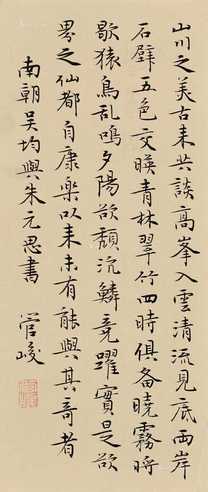 山川之美古来共談高峯入雲清流見底兩岸
石壁五色交暎青林翠竹四時俱备曉霧將
歇猿鳥乱鳴夕陽欲頹沉鱗竞躍實是欲
界之仙都自康樂以来未有能與其奇者
南朝吴均與朱元思書 管峻